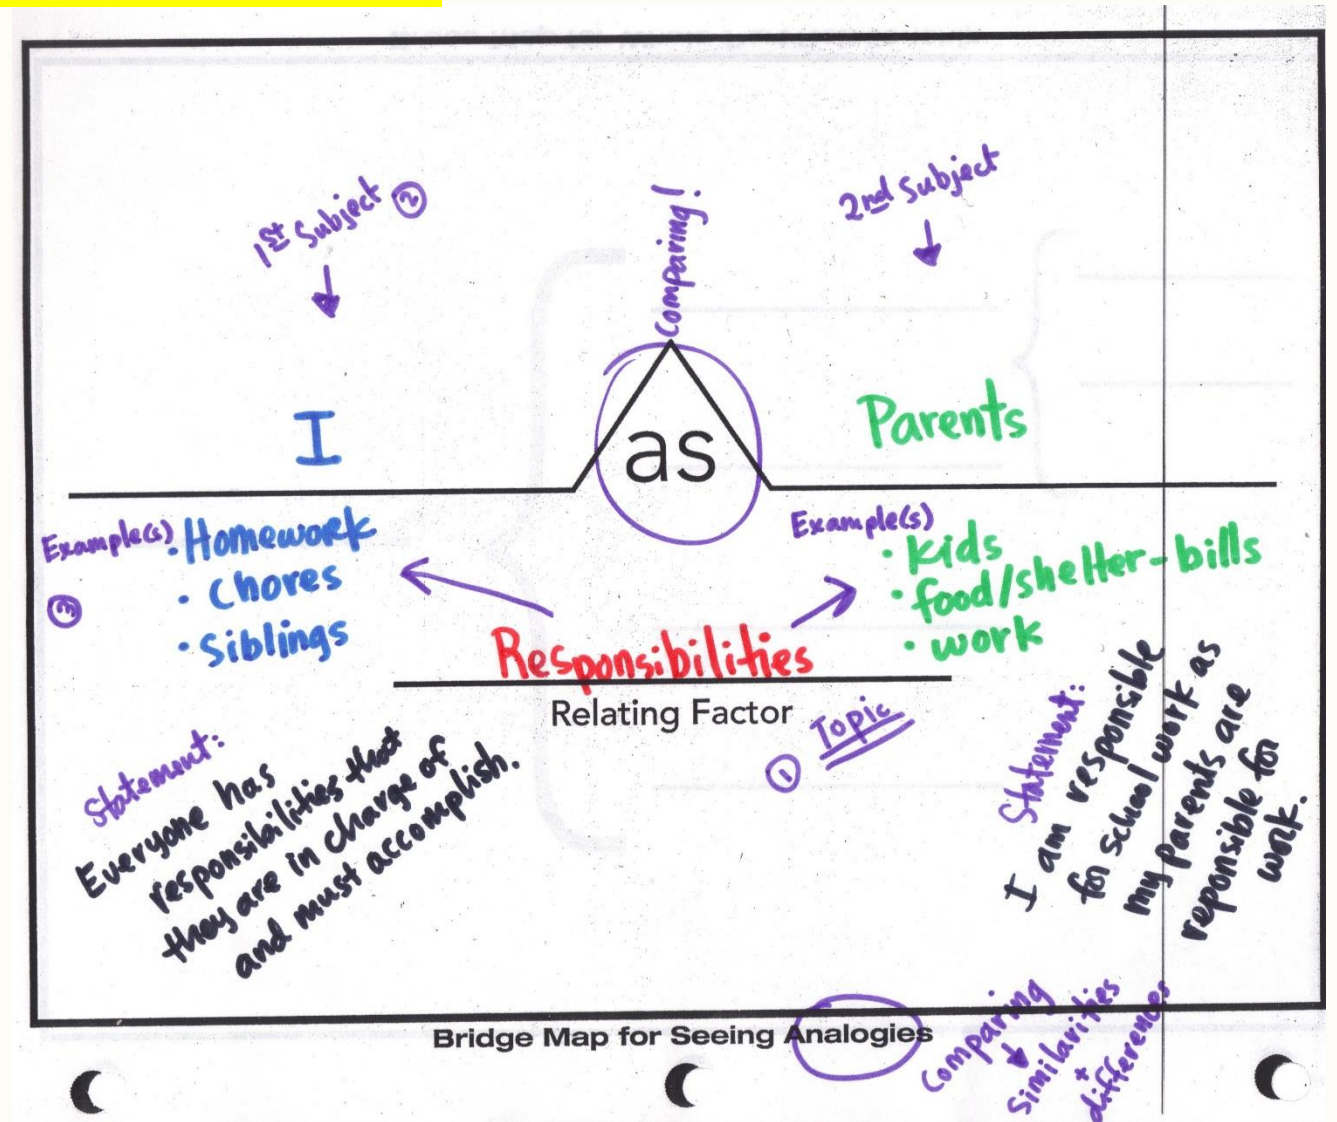 1st Subject ②
Comparing!
2nd Subject
I
as
Parents
Example(s)
• Homework
• Chores
• Siblings
③
Example(s)
• kids
• food/shelter-bills
• work
Responsibilities
Relating Factor
① Topic
Statement:
Everyone has
responsibilities that
they are in charge of
and must accomplish.
Statement:
I am responsible
for school work as
my parents are
reponsible for
work.
Bridge Map for Seeing Analogies
Comparing
Similarities
+
differences